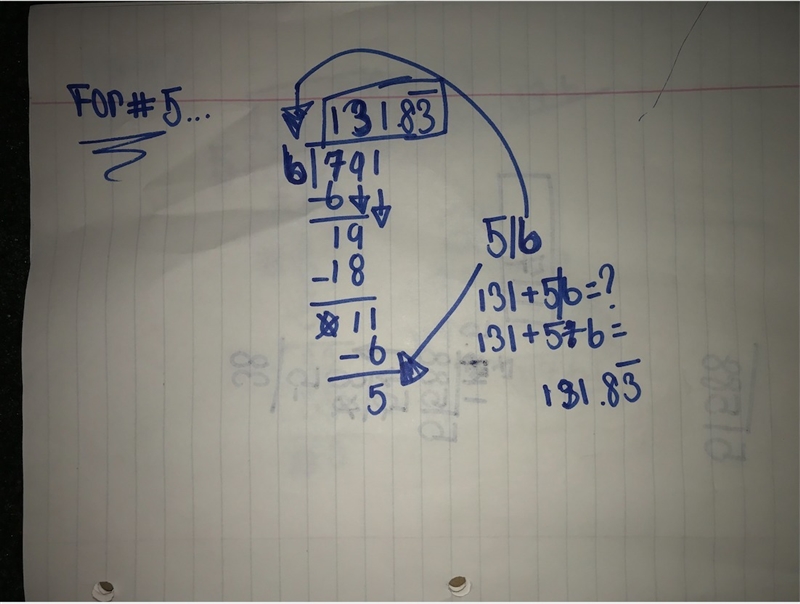 FOR # 5...
131.83̅
6|791
-6
19
-18
11
-6
5
5/6
131+5/6=?
131+5÷6=
131.83̅